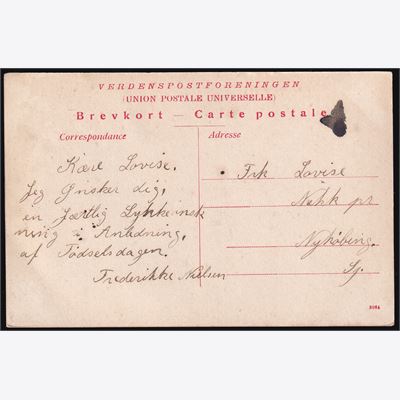 VERDENSPOSTFORENINGEN
(UNION POSTALE UNIVERSELLE)
Brevkort — Carte postale
Correspondance
Adresse
Kære Lovise.
Jeg Ønsker dig,
en Jærtlig Lykkeønsk
ning i Anledning,
af Fødselsdagen.
Frederikke Nielsen
Frk Lovise
pr
Nykøbing.
Sj.